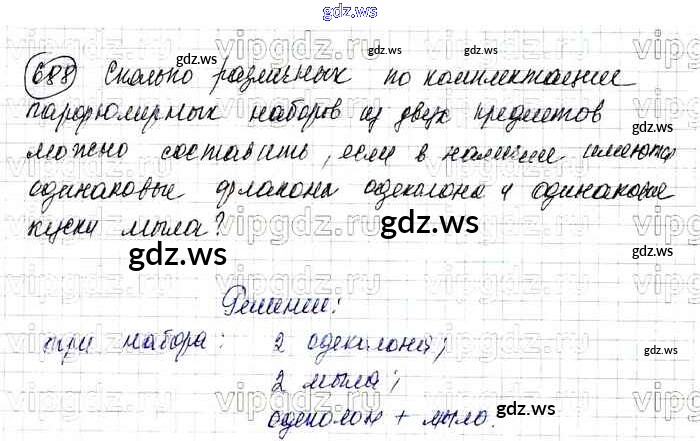 gdz.ws
688 Сколько различных по комплектации
парфюмерных наборов из двух предметов
можно составить, если в наличии имеются
одинаковые флаконы одеколона и одинаковые
куски мыла?
gdz.ws
gdz.ws
gdz.ws
gdz.ws
Решение:
три набора: 2 одеколона;
gdz.ws
2 мыла;
одеколон + мыло.
gdz.ws
gdz.ws